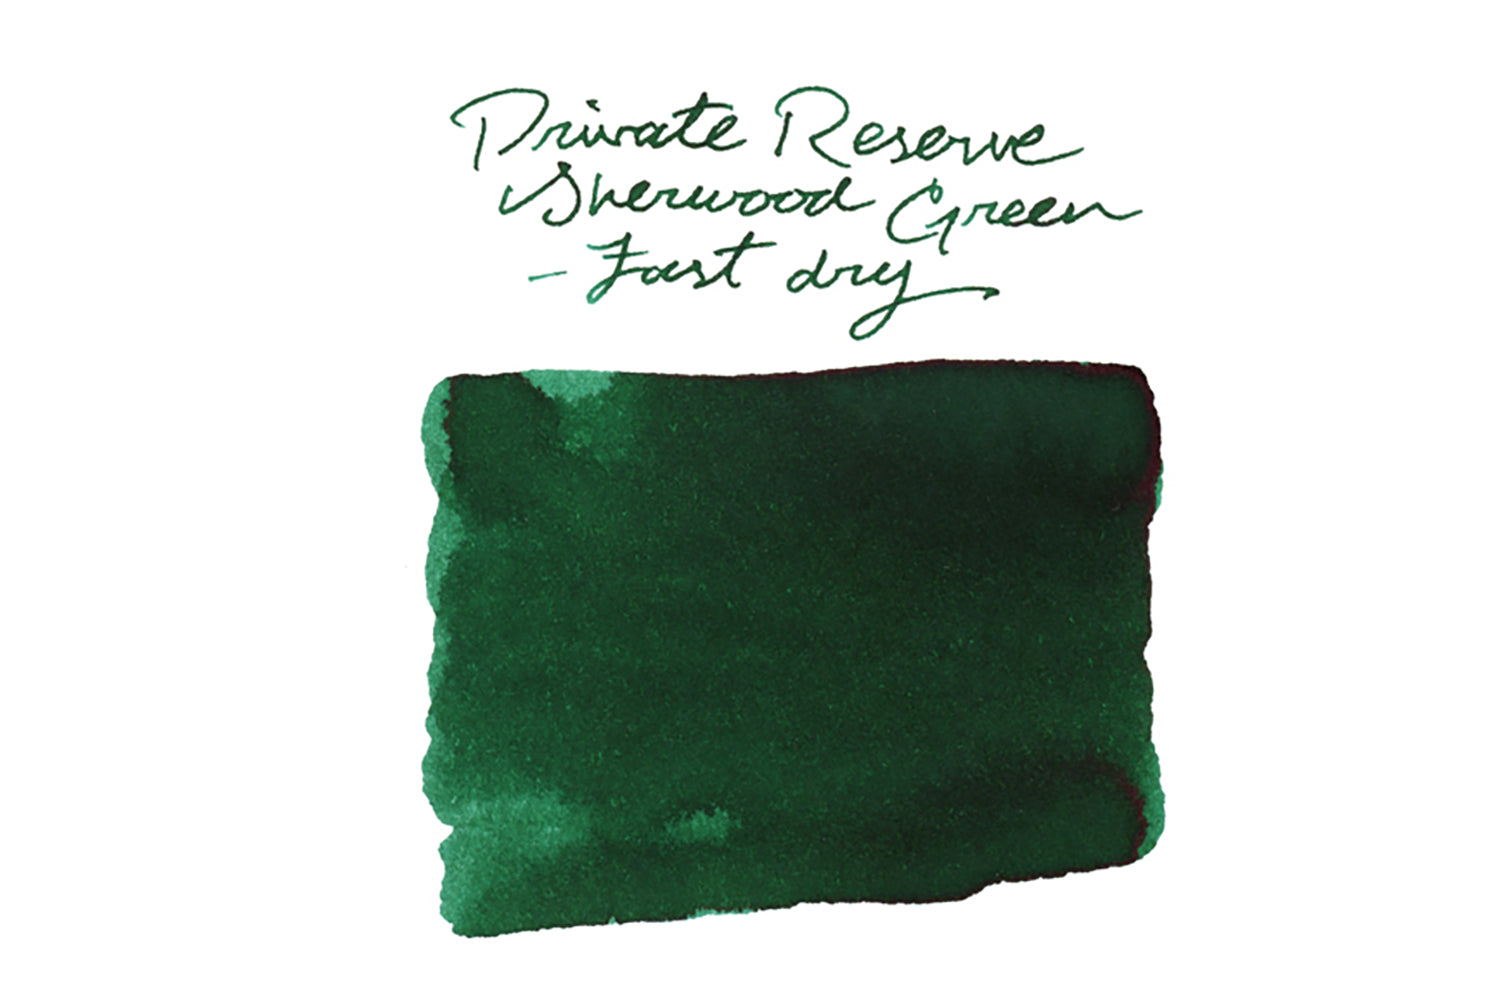 Private Reserve
Sherwood Green
- Fast dry